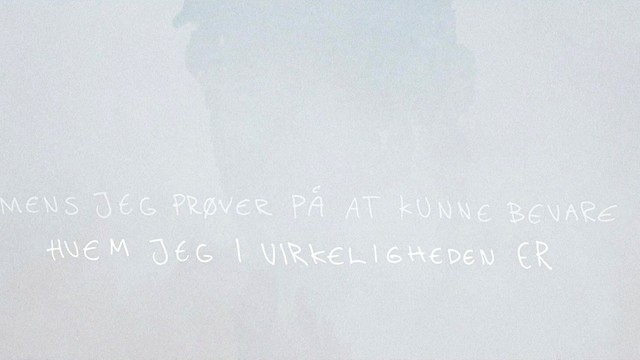 MENS JEG PRØVER PÅ AT KUNNE BEVARE
HVEM JEG I VIRKELIGHEDEN ER